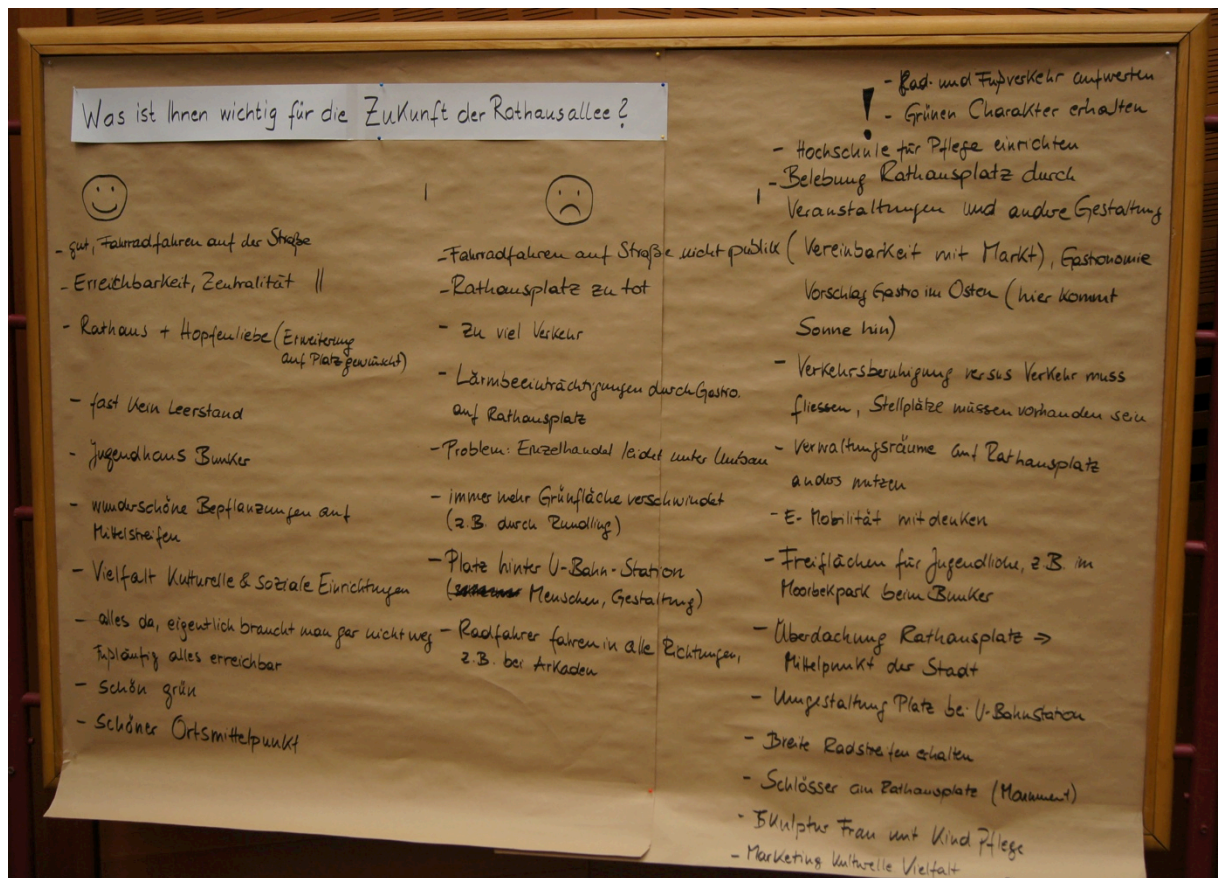 Was ist Ihnen wichtig für die Zukunft der Rathausallee?
- gut, Fahrradfahren auf der Straße
- Erreichbarkeit, Zentralität ||
- Rathaus + Hopfenliebe (Erweiterung
auf Platz gewünscht)
- fast kein Leerstand
- Jugendhaus Bunker
- wunderschöne Bepflanzungen auf
Mittelstreifen
- Vielfalt Kulturelle & Soziale Einrichtungen
- alles da, eigentlich braucht man gar nicht weg
Fußläufig alles erreichbar
- schön grün
- Schöner Ortsmittelpunkt
- Fahrradfahren auf Straße nicht publik
- Rathausplatz zu tot
- zu viel Verkehr
- Lärmbeeinträchtigungen durch Gastro.
auf Rathausplatz
- Problem: Einzelhandel leidet unter Umbau
- immer mehr Grünfläche verschwindet
(z.B. durch Rundling)
- Platz hinter U-Bahn-Station
( Menschen, Gestaltung)
- Radfahrer fahren in alle Richtungen,
z.B. bei Arkaden
!
- Rad- und Fußverkehr aufwerten
- Grünen Charakter erhalten
- Hochschule für Pflege einrichten
- Belebung Rathausplatz durch
Veranstaltungen und andere Gestaltung
(Vereinbarkeit mit Markt), Gastronomie
Vorschlag Gastro im Osten (hier kommt
Sonne hin)
- Verkehrsberuhigung versus Verkehr muss
fliessen, Stellplätze müssen vorhanden sein
- Verwaltungsräume auf Rathausplatz
anders nutzen
- E-Mobilität mitdenken
- Freiflächen für Jugendliche, z.B. im
Moorbekpark beim Bunker
- Überdachung Rathausplatz ⇒
Mittelpunkt der Stadt
- Umgestaltung Platz bei U-Bahnstation
- Breite Radstreifen erhalten
- Schlösser am Rathausplatz (Monument)
- Skulptur Frau mit Kind Pflege
- Marketing Kulturelle Vielfalt